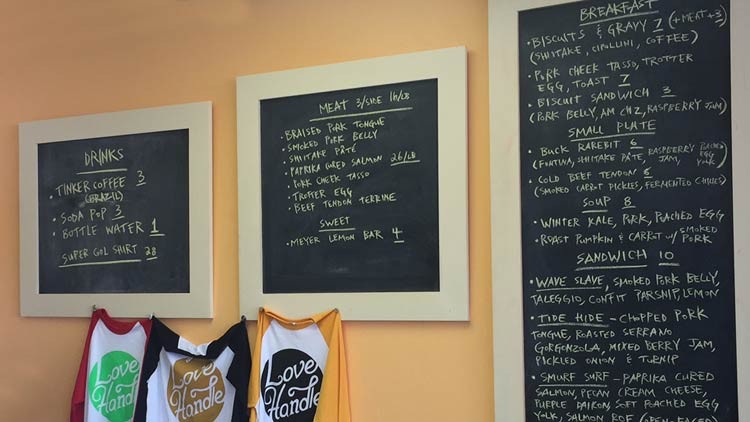 DRINKS
TINKER COFFEE 3
(BRAZIL)
SODA POP 3
BOTTLE WATER 1
SUPER GOL SHIRT 28
MEAT 3/SIDE 16/LB
• BRAISED PORK TONGUE
• SMOKED PORK BELLY
• SHIITAKE PÂTÉ
• PAPRIKA CURED SALMON 26/LB
• PORK CHEEK TASSO
• TROTTER EGG
• BEEF TENDON TERRINE
SWEET
• MEYER LEMON BAR 4
BREAKFAST
• BISCUITS & GRAVY 7 (+MEAT +3)
(SHIITAKE, CIPOLLINI, COFFEE)
• PORK CHEEK TASSO, TROTTER
EGG, TOAST 7
• BISCUIT SANDWICH 3
(PORK BELLY, AM CHZ, RASPBERRY JAM)
SMALL PLATE
• BUCK RAREBIT 6
(FONTINA, SHIITAKE PÂTE, RASPBERRY JAM, POACHED EGG YOLK)
• COLD BEEF TENDON 6
(SMOKED CARROT PICKLES, FERMENTED CHILIES)
SOUP 8
• WINTER KALE, PORK, POACHED EGG
• ROAST PUMPKIN & CARROT W/ SMOKED PORK
SANDWICH 10
• WAVE SLAVE, SMOKED PORK BELLY,
TALEGGIO, CONFIT PARSNIP, LEMON
• TIDE HIDE - CHOPPED PORK
TONGUE, ROASTED SERRANO
GORGONZOLA, MIXED BERRY JAM,
PICKLED ONION & TURNIP
• SMURF SURF - PAPRIKA CURED
SALMON, PECAN CREAM CHEESE,
PURPLE DAIKON, SOFT POACHED EGG
YOLK, SALMON ROE (OPEN-FACED)
Love
Handle
Love
Handle
Love
Handle